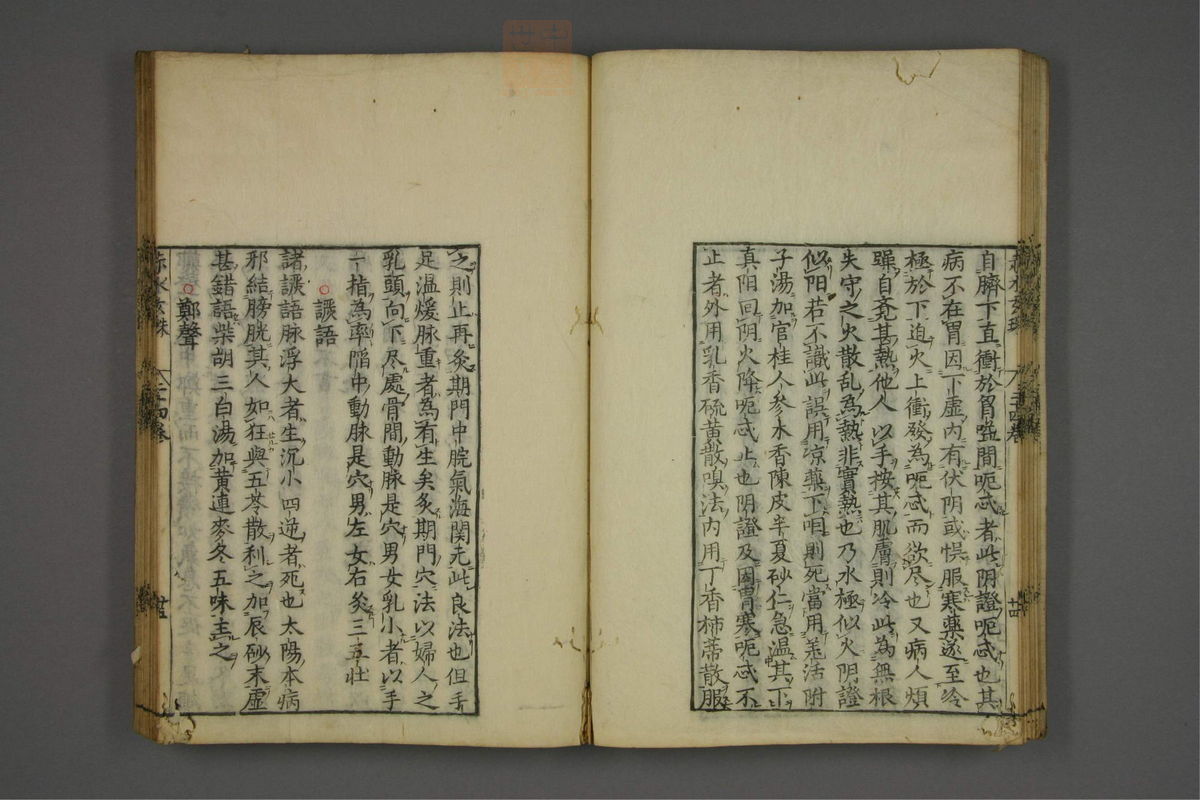 自臍下直衝於胷嗌間呃忒者此阴證呃忒也其
病不在胃因下虛內有伏阴或悞服寒藥遂至冷
極於下迫火上衝發為呃忒而欲尽也又病人煩
躁自覺甚熱他人以手按其肌膚則冷此為無根
失守之火散乱為熱非實熱也乃水極似火阴證
似阳若不識此誤用凉藥下咽則死當用羗活附
子湯加官桂人參木香陳皮半夏砂仁急温其下
真阳回阴火降呃忒止也阴證及因胃寒呃忒不
止者外用乳香硫黄散嗅法内用丁香柿蒂散服
赤水玄珠
之則止再灸期門中脘氣海関元此良法也但手
足温煖脉重者為有生矣灸期門穴法以婦人之
乳頭向下尽處骨間動脉是穴男女乳小者以手
一指為率陷中動脉是穴男左女右灸三五壯
譫語
諸譫語脉浮大者生沉小四逆者死也太陽本病
邪結膀胱其人如狂與五苓散利之加辰砂末虛
甚錯語柴胡三白湯加黄連麥冬五味主之
鄭聲
赤水玄珠